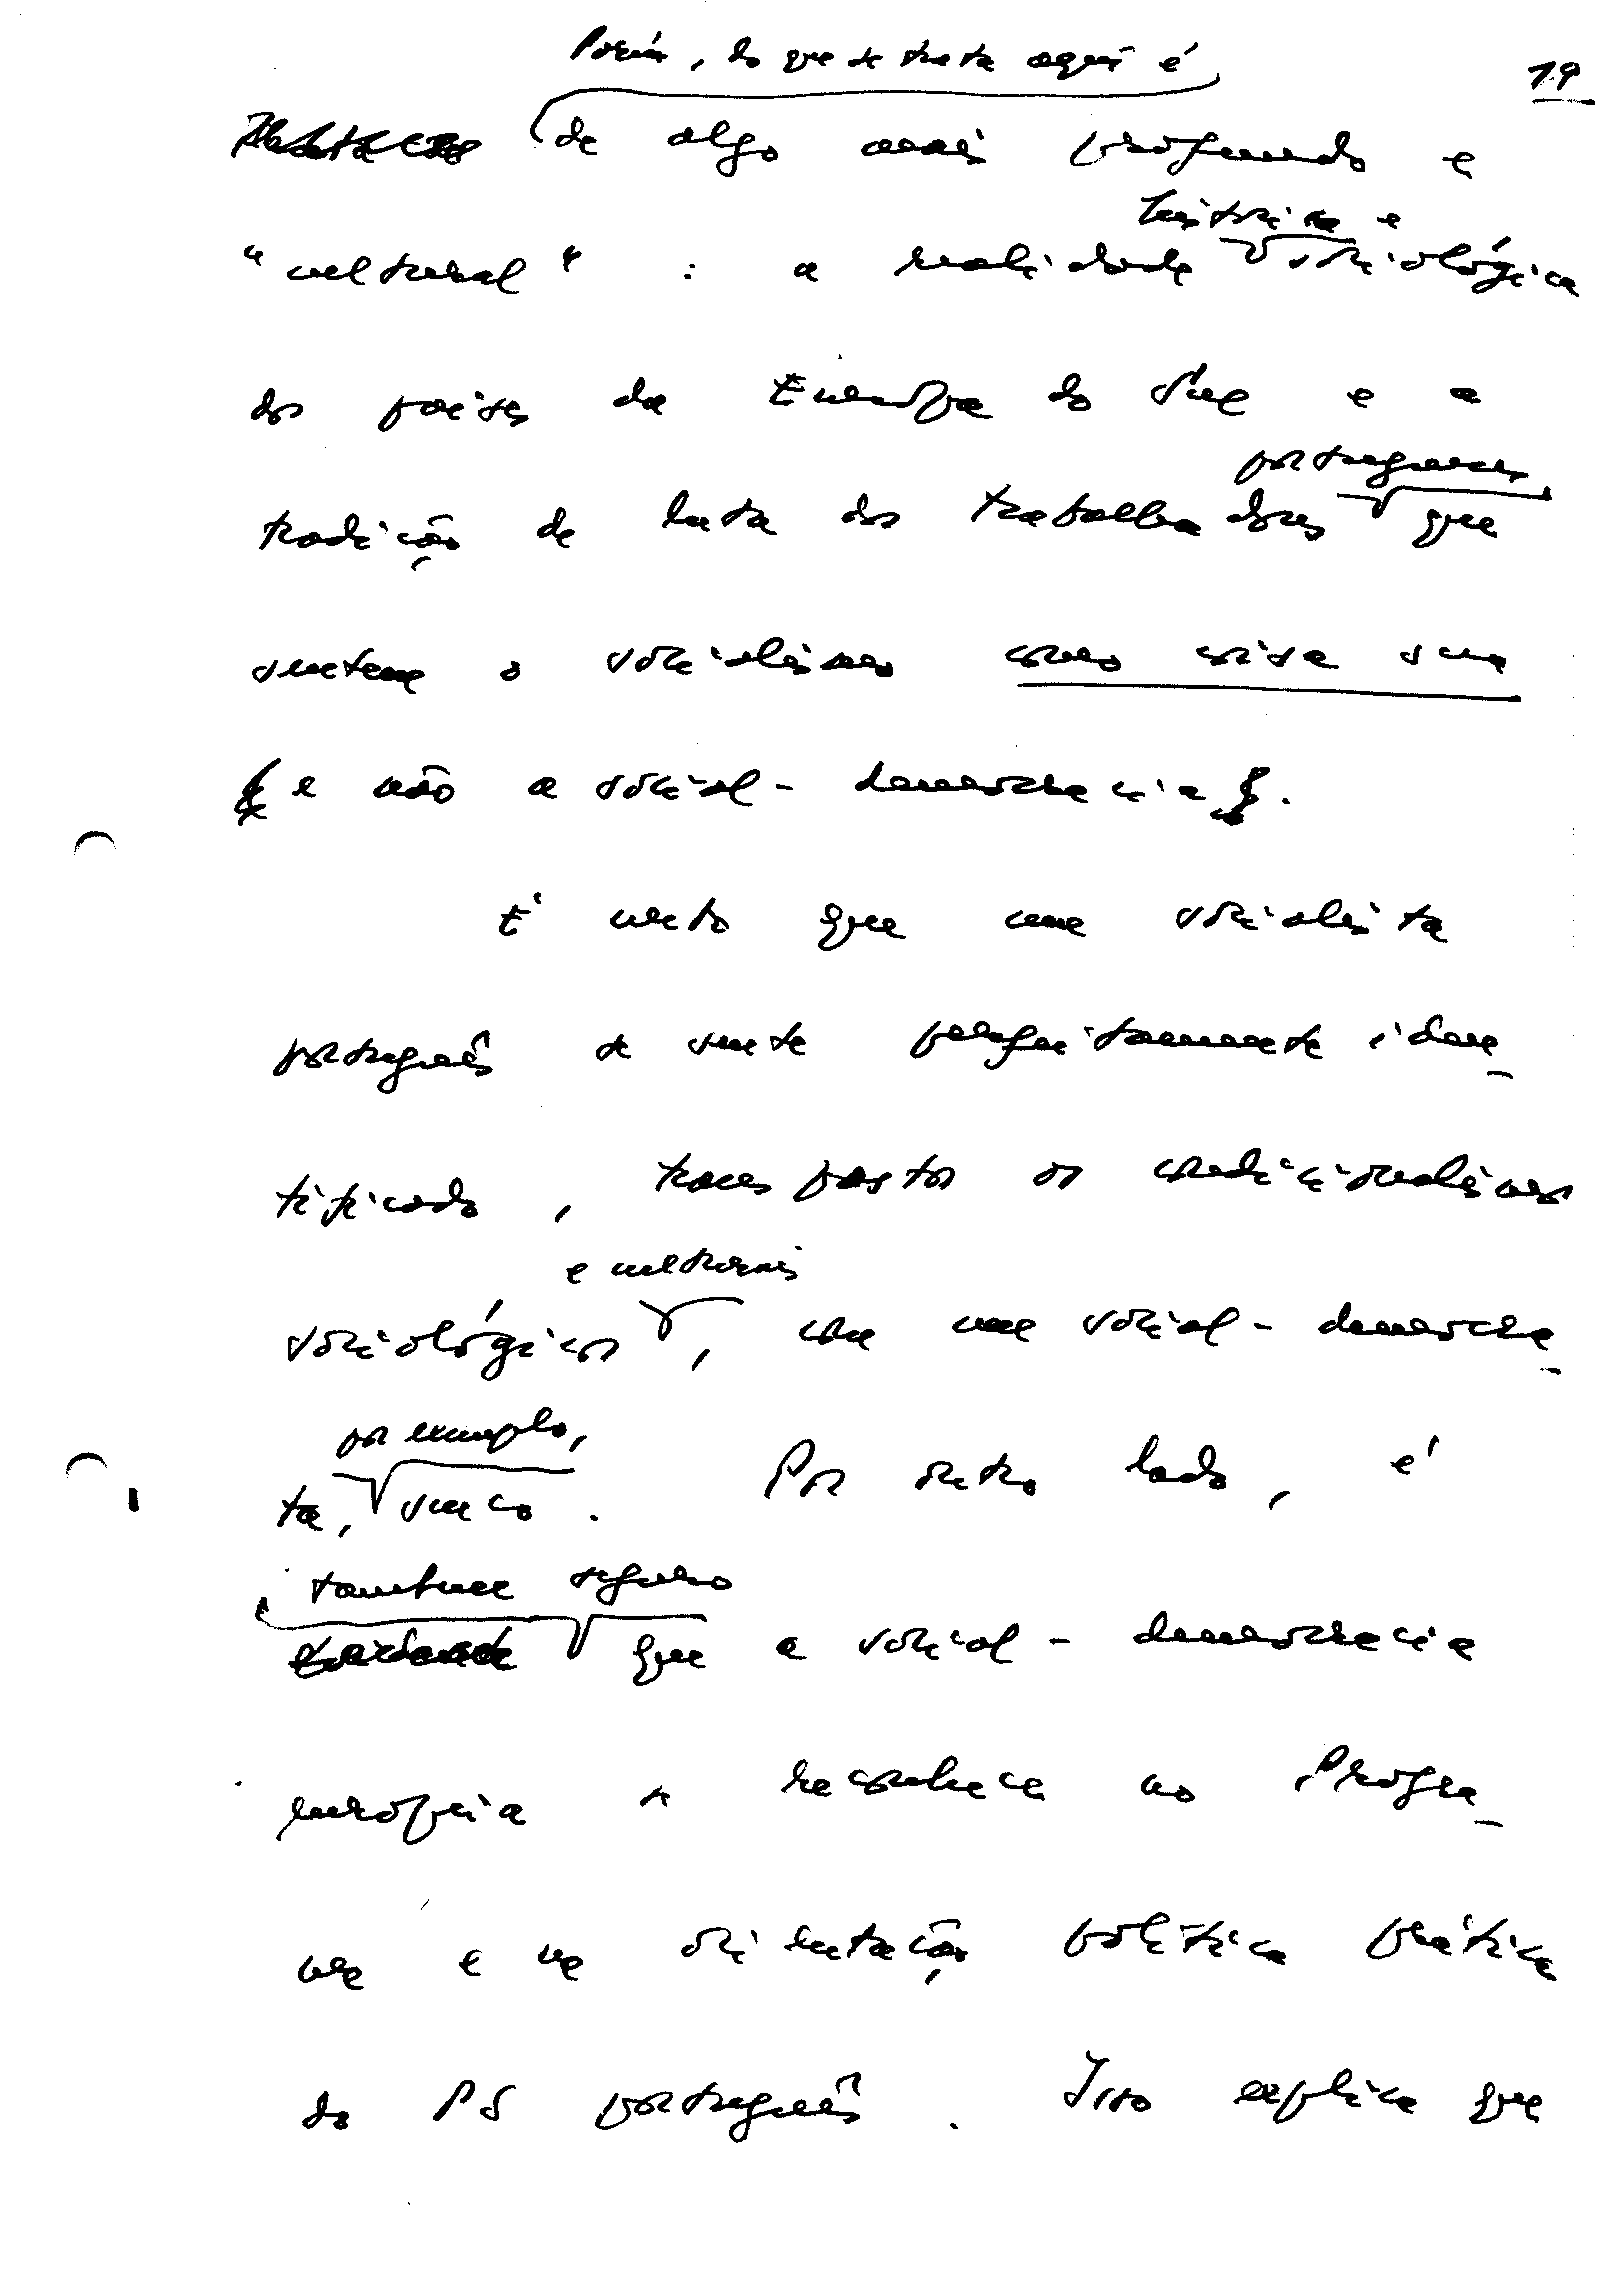 Porém, do que se trata aqui é
19
de algo mais profundo e
histórica e
"cultural" : a realidade sociológica
dos países da Europa do Sul e a
portugueses
tradição de luta dos trabalhadores que
sentem o socialismo como coisa sua
e não a social-democracia.
É certo que um socialista
português se sente perfeitamente iden-
tificado, transpostos os condicionalismos
e culturais
sociológicos, com um social-democra-
por exemplo,
ta, sueco. Por outro lado, é
também seguro
que a social-democracia
europeia se reconhece no Progra-
ma e na orientação política prática
do PS português. Isso explica que